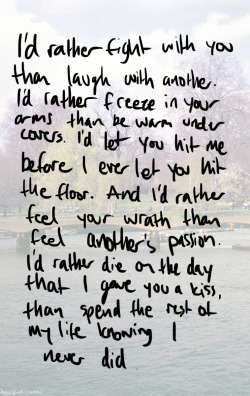 I'd rather fight with you
than laugh with another.
I'd rather freeze in your
arms than be warm under
covers. I'd let you hit me
before I ever let you hit
the floor. And I'd rather
feel your wrath than
feel another's passion.
I'd rather die on the day
that I gave you a kiss,
than spend the rest of
my life knowing I
never did